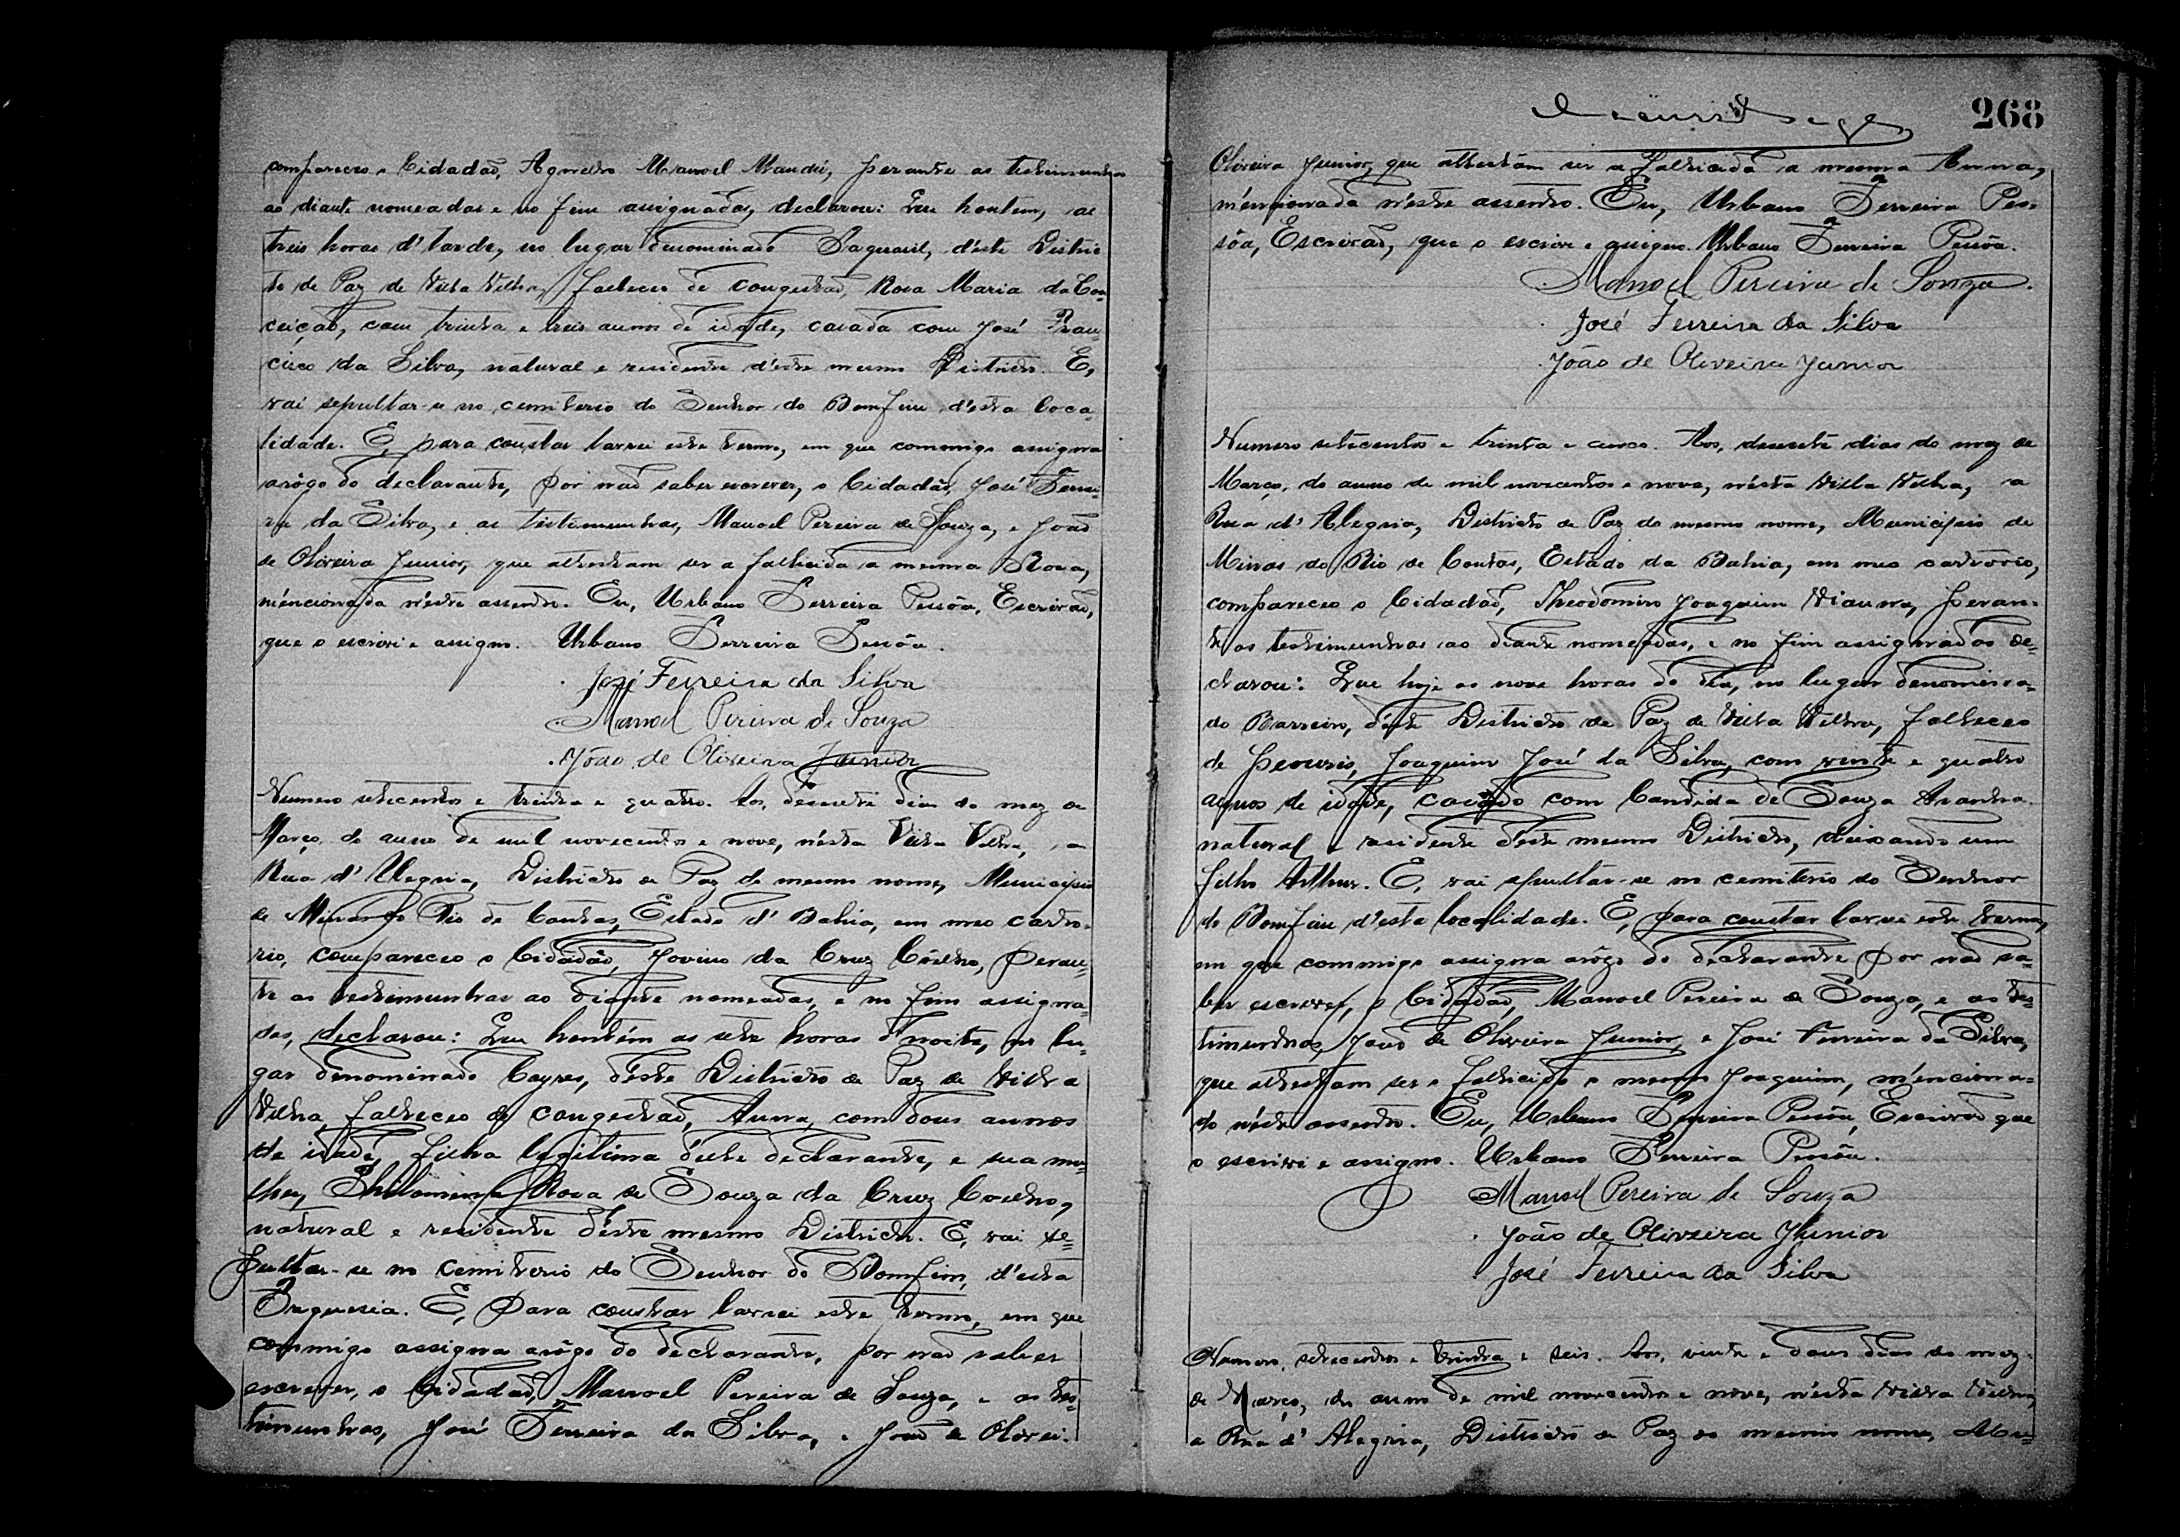 compareceo o Cidadão, Manoel, perante as testimunhas
ao diante nomeadas e no fim assignadas, declarou: Que hontem, as
treis horas d'tarde, no lugar denominado d'este Distric
to de Paz de Villa Velha, falleceo de congestão, Rosa Maria da Con-
ceição, com trinta e treis annos de idade, casada com José Fran-
cisco da Silva, natural e residente d'este mesmo Districto. E,
vai sepultar-se no cemiterio do Senhor do Bomfim d'esta loca-
lidade. E, para constar lavrei este termo, em que commigo assigna
arôgo do declarante, por não saber escrever, o Cidadão, José Ferrei-
ra da Silva, e as testimunhas, Manoel Pereira de Souza, e João
de Oliveira Junior, que attestam ser a fallecida a mesma Rosa,
méncionada n'este assento. Eu, Urbano Ferreira Pessôa, Escrivão,
que o escrivi e assigno. Urbano Ferreira Pessôa.
José Ferreira da Silva
Manoel Pereira de Souza
João de Oliveira Junior
Numero setecentos e trinta e quatro. Aos, desesete dias do mez de
Março, do anno de mil novecentos e nove, n'ésta Villa Velha, a
Rua d'Alegria, Districto de Paz do mesmo nome, Municipio
de Minas do Rio de Contas, Estado d'Bahia, em meo carto-
rio, compareceo o Cidadão, Jovino da Cruz Coêlho, peran-
te as testimunhas ao diante nomeadas, e no fim assigna-
das, declarou: Que hontém as sete horas d'noite, no lu-
gar denominado d'este Districto de Paz de Villa
Velha, falleceo de congestão, Anna, com dous annos
de idade, filha legitima d'este declarante, e sua mu-
lher, Philomena Rosa de Souza da Cruz Coelho,
natural e residente d'éste mesmo Districto. E, vai se-
pultar-se no Cemiterio do Senhor do Bomfim, d'esta
Freguesia. E, para constar lavrei este termo, em que
commigo assigna arôgo do declarante, por não saber
escrever, o Cidadão, Manoel Pereira de Souza, e as tes-
timunhas, José Ferreira da Silva, e João de Olivei.
268
Oliveira Junior, que attestam ser a fallecida a mesma Anna,
méncionada n'este assento. Eu, Urbano Ferreira Pes-
sôa, Escrivão, que o escrivi e assigno. Urbano Ferreira Pessôa.
Manoel Pereira de Souza.
José Ferreira da Silva
João de Oliveira Junior
Numero setecentos e trinta e cinco. Aos, desesete dias do mez de
Março, do anno de mil novecentos e nove, n'ésta Villa Velha, a
Rua d'Alegria, Districto de Paz do mesmo nome, Municipio de
Minas do Rio de Contas, Estado da Bahia, em meo cartorio,
compareceo o Cidadão, Theodomiro Joaquim Vianna, peran-
te as testimunhas ao diante nomeadas, e no fim assignadas de-
clarou: Que hoje as nove horas do dia, no lugar denomina-
do Barreiro, d'éste Districto de Paz de Villa Velha, falleceo
de pleuris, Joaquim José da Silva, com vinte e quatro
annos de idade, casado com Candida de Souza
natural e residente d'éste mesmo Districto, deixando um
filho Arthur. E, vai sepultar-se no cemiterio do Senhor
do Bomfim d'ésta localidade. E, para constar lavrei este termo,
em que commigo assigna arôgo do declarante por não sa-
ber escrever, o Cidadão, Manoel Pereira de Souza, e as tes-
timunhas, João de Oliveira Junior, e José Ferreira da Silva,
que attestam ser o fallecido o mesmo Joaquim, méncciona-
do n'éste assento. Eu, Urbano Ferreira Pessôa, Escrivão que
o escrivi e assigno. Urbano Ferreira Pessôa.
Manoel Pereira de Souza
João de Oliveira Junior
José Ferreira da Silva
Numero, setecentos e trinta e seis. Aos, vinte e dous dias do mez
de Março, do anno de mil novecentos e nove, n'ésta Villa Velha,
a Rua d'Alegria, Districto de Paz do mesmo nome, Mu-